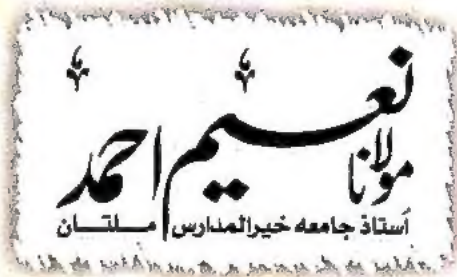 مولانا نعیم احمد
استاذ جامعه خیرالمدارس ملتان